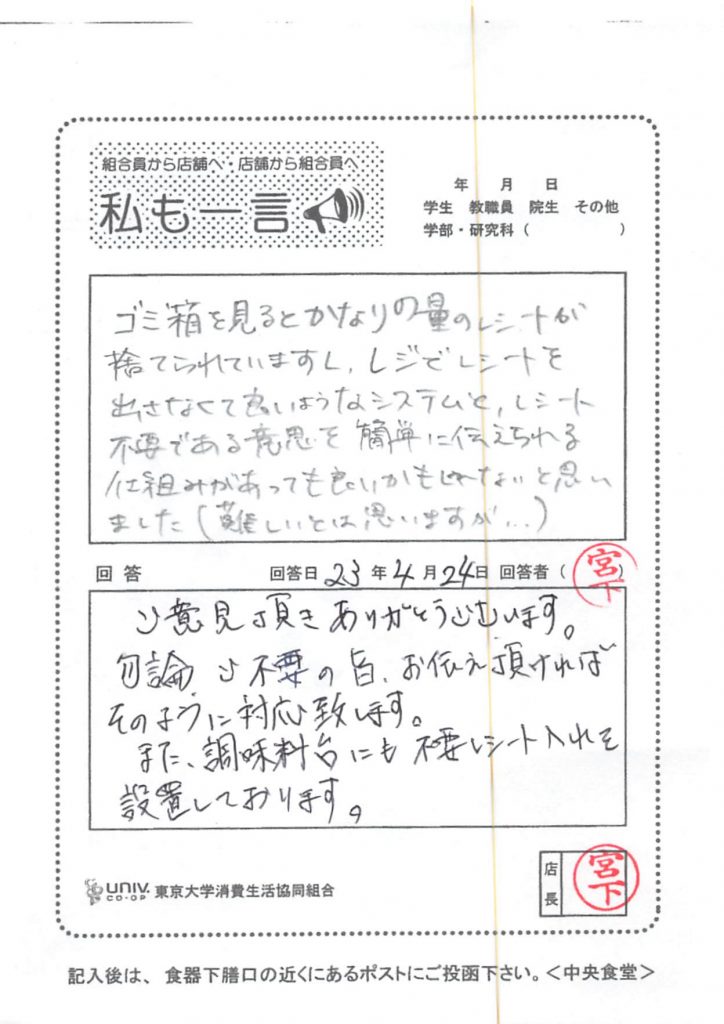 組合員から店舗へ・店舗から組合員へ
私も一言
年 月 日
学生 教職員 院生 その他
学部・研究科（ ）
ゴミ箱を見るとかなりの量のレシートが
捨てられていますし、レジでレシートを
出さなくて良いようなシステムと、レシート
不要である意思を簡単に伝えられる
仕組みがあっても良いかもしれないと思い
ました(難しいとは思いますが…)
回答 回答日 23 年 4 月 24日 回答者（宮下）
ご意見頂きありがとうございます。
勿論ご不要の旨、お伝え頂ければ
そのように対応致します。
また、調味料台にも不要レシート入れを
設置しております。
UNIV. CO-OP 東京大学消費生活協同組合
店長 宮下
記入後は、食器下膳口の近くにあるポストにご投函下さい。＜中央食堂＞